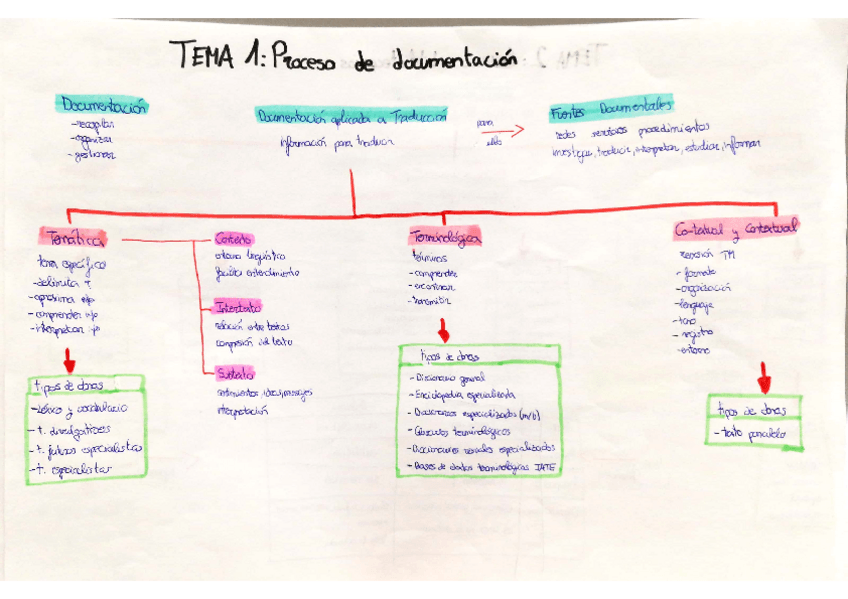 TEMA 1: Proceso de documentación
Documentación
-recopilar
-organizar
-gestionar
Documentación aplicada a Traducción
información para traducir
para
ello
Fuentes Documentales
redes servicios procedimientos
investigar, traducir, interpretar, estudiar, informar
Temática
tema específico
-delimita
-aproxima
-comprender
-interpretar
tipos de obras
-léxico y vocabulario
-t. divulgativos
-t. futuros especialistas
-t. especialistas
Contexto
entorno lingüístico
facilita entendimiento
Intertexto
relación entre textos
comprensión del texto
Subtexto
sentimientos, ideas, mensajes
interpretación
Terminológica
términos
-comprender
-encontrar
-transmitir
tipos de obras
-Diccionario general
-Enciclopedia especializada
-Diccionarios especializados (m/b)
-Glosarios terminológicos
-Diccionarios visuales especializados
-Bases de datos terminológicas IATE
Co-textual y Contextual
revisión TM
-formato
-organización
-lenguaje
-tono
-registro
-entorno
tipos de obras
-texto paralelo